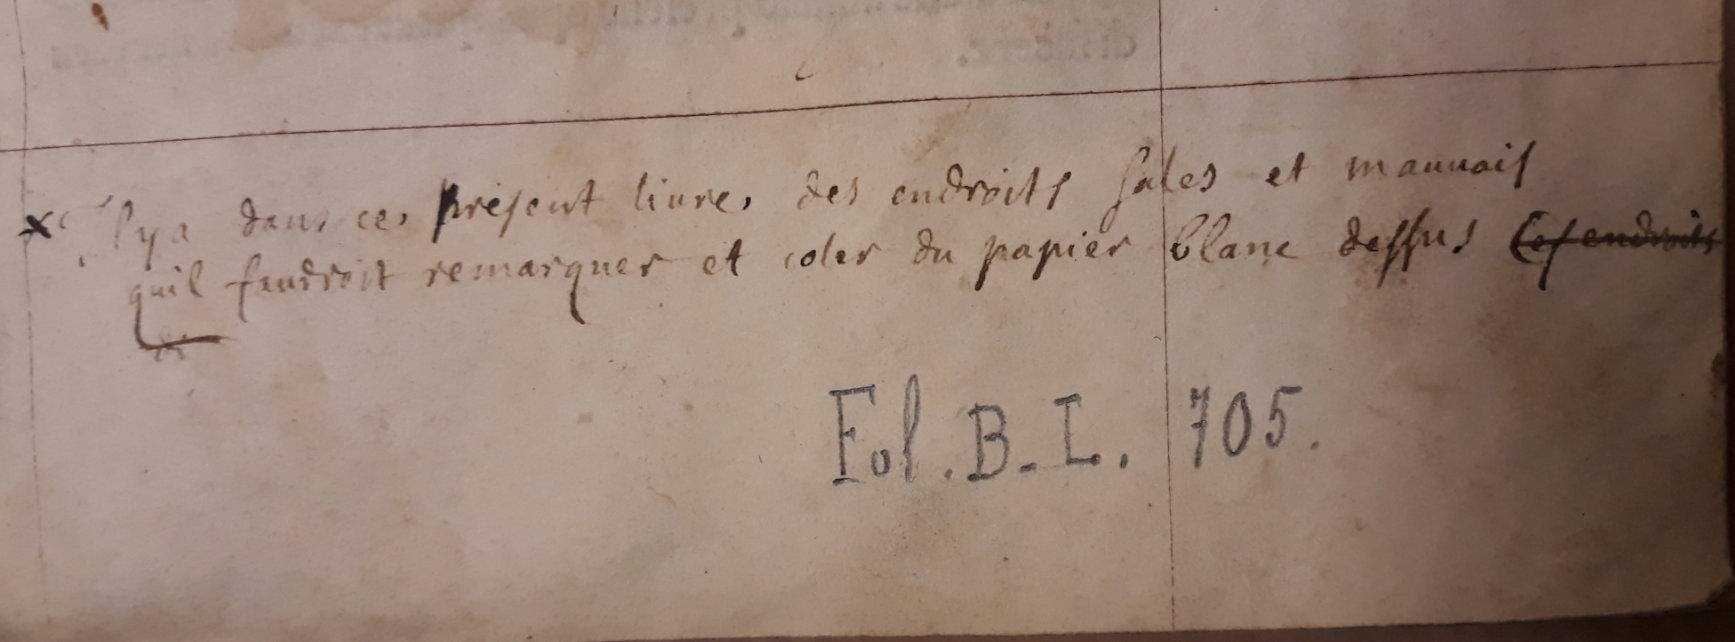 x Il y a dans ce present liure, des endroits sales et mauuais
quil faudroit remarquer et coler du papier blanc dessus ces endroits
Fol. B. L. 705.